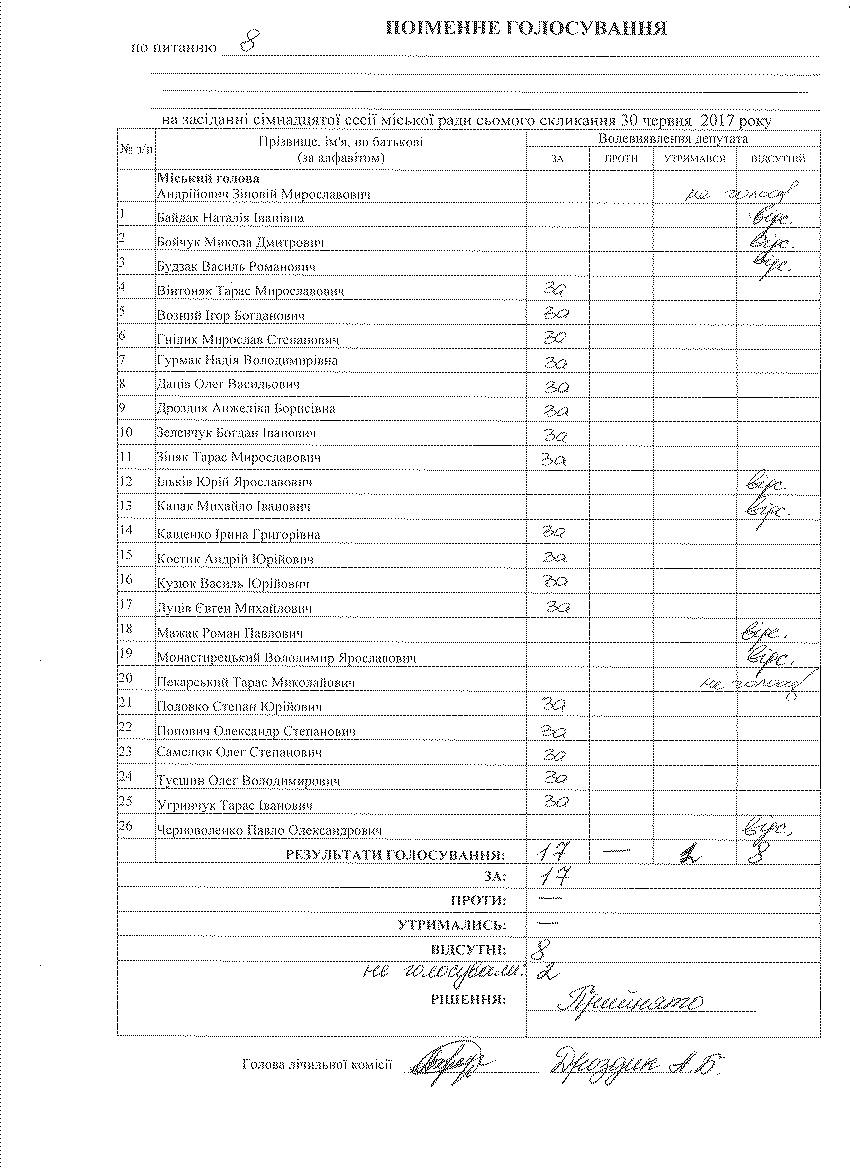 ПОІМЕННЕ ГОЛОСУВАННЯ
по питанню 8
на засіданні сімнадцятої сесії міської ради сьомого скликання 30 червня 2017 року
№ з/п Прізвище, ім'я, по батькові (за алфавітом) Волевиявлення депутата
ЗА ПРОТИ УТРИМАВСЯ ВІДСУТНІЙ
Міський голова
Андрійович Зіновій Мирославович не голосув
1 Байдак Наталія Іванівна відс.
2 Бойчук Микола Дмитрович відс.
3 Будзак Василь Романович відс.
4 Вінтоняк Тарас Мирославович за
5 Возний Ігор Богданович за
6 Гнідик Мирослав Степанович за
7 Гурмак Надія Володимирівна за
8 Даців Олег Васильович за
9 Дроздик Анжеліка Борисівна за
10 Зеленчук Богдан Іванович за
11 Зіняк Тарас Мирославович за
12 Ільків Юрій Ярославович відс.
13 Капак Михайло Іванович відс.
14 Кащенко Ірина Григорівна за
15 Костик Андрій Юрійович за
16 Кузюк Василь Юрійович за
17 Луців Євген Михайлович за
18 Мажак Роман Павлович відс.
19 Монастирецький Володимир Ярославович відс.
20 Пекарський Тарас Миколайович не голосув
21 Половко Степан Юрійович за
22 Попович Олександр Степанович за
23 Самелюк Олег Степанович за
24 Тусшин Олег Володимирович за
25 Угринчук Тарас Іванович за
26 Черноволенко Павло Олександрович відс.
РЕЗУЛЬТАТИ ГОЛОСУВАННЯ: 17 — 2 8
ЗА: 17
ПРОТИ: —
УТРИМАЛИСЬ: —
ВІДСУТНІ: 8
не голосували: 2
РІШЕННЯ: Прийнято
Голова лічильної комісії Дроздик А.Б.